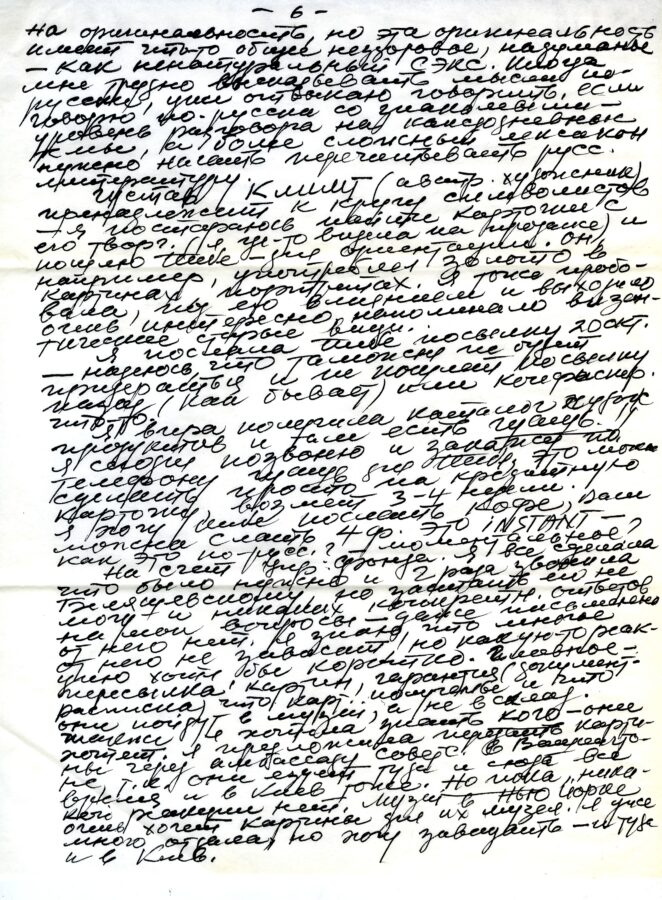 - 6 -
на оригинальность, но эта оригинальность
имеет что-то общее нездоровое, надуманное
- как ненатуральный СЭКС. Иногда
мне трудно высказывать мысли по-
русски, уже отвыкаю говорить, если
говорю по-русски со знакомыми -
уровень разговора на каждодневные
темы, а более сложный лексикон
нужно начать перечитывать русс.
литературу.
Густав Климт (австр. художник)
принадлежит к кругу символистов
- я постараюсь найти карточки с
его творч. (я где-то видела на продаже) и
пошлю тебе - для ориентации. Он,
например, употреблял золото в
картинах, портретах. Я тоже пробо-
вала, под его влиянием и выходило
очень интересно, напоминало визан-
тическое старые виды.
Я послала тебе посылку 20 окт.
- надеюсь, что таможня не будет
придираться и не пошлет посылку
назад (как бывает) или конфискир.
что-то.
Я вчера получила каталог худож
продуктов и там есть гуашь.
Я сегодня позвоню и закажу по
телефону гуашь для тебя, это можно
сделать просто на кредитную
карточку, возьмет 3-4 недели.
Я хочу тебе послать кофе, Вам
можно слать 4ф. Это INSTANT -
как это по-русс.? - моментальное?
На счет фонда. Я все сделала
что было нужно и 2 раза звонила
но застать его не
могу и никаких конкретн. ответов
на мои вопросы - даже письменно
от него нет. Я знаю, что многое
от него не зависит, но какую-то реак-
цию хотя бы коротко. Главное -
пересылка картин, гарантия (документ-
расписка), что карт. получены и что
они пойдут в музеи, а не в склад.
Я хотела знать кого - они
хотят. Я предложила передать карти-
ны через амбассаду советс. в Вашингто-
не т.к. они ездят туда и сюда все
время и в Киев тоже. Но пока ника-
кой реакции нет. Музей в Нью Йорке
очень хотел картины для их музея. Я уже
много отдала, но хочу завещать - и туда
и в Киев.